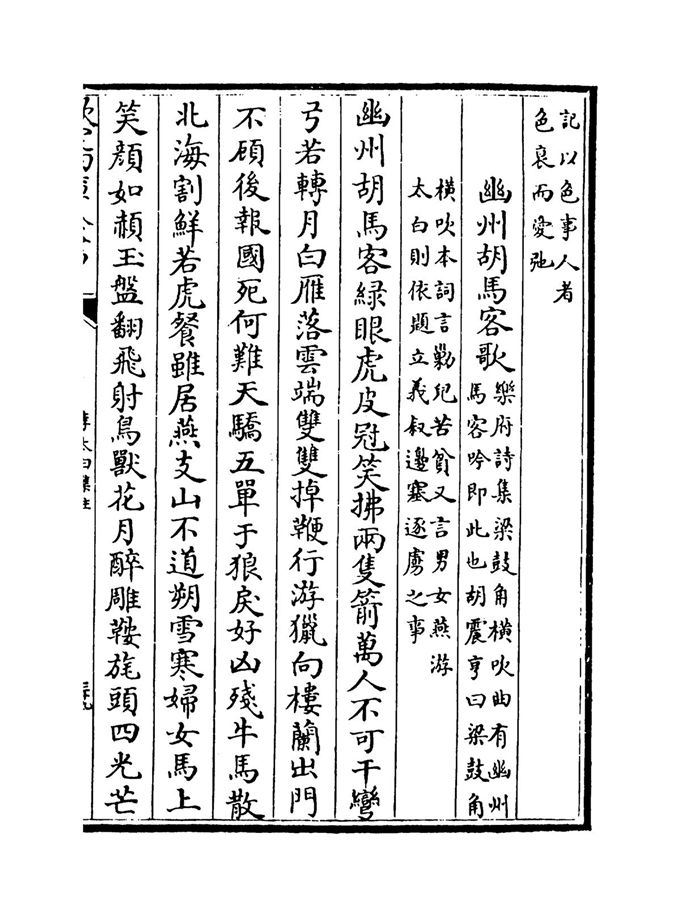 記以色事人者
色衰而愛弛
幽州胡馬客歌
樂府詩集梁鼓角横吹曲有幽州
馬客吟即此也胡震亨曰梁鼓角
横吹本詞言勦兒苦貧又言男女燕游
太白則依題立義叙邊塞逐虜之事
幽州胡馬客綠眼虎皮冠笑拂兩隻箭萬人不可干彎
弓若轉月白雁落雲端雙雙掉鞭行游獵向樓蘭出門
不顧後報國死何難天驕五單于狼戾好凶殘牛馬散
北海割鮮若虎餐雖居燕支山不道朔雪寒婦女馬上
笑顔如赬玉盤翻飛射鳥獸花月醉雕鞍旄頭四光芒
李太白集注